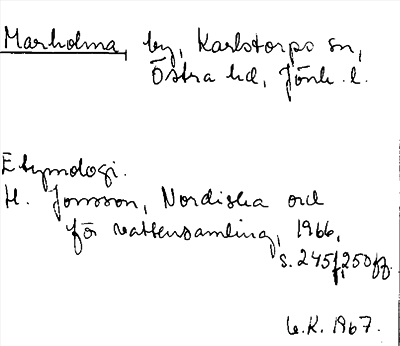 Marholma, by, Karlstorps sn,
Östra hd, Jönk. l.
Etymologi.
H. Jonsson, Nordiska ord
för vattensamling, 1966,
s. 245f, 250ff.
G.K. 1967.